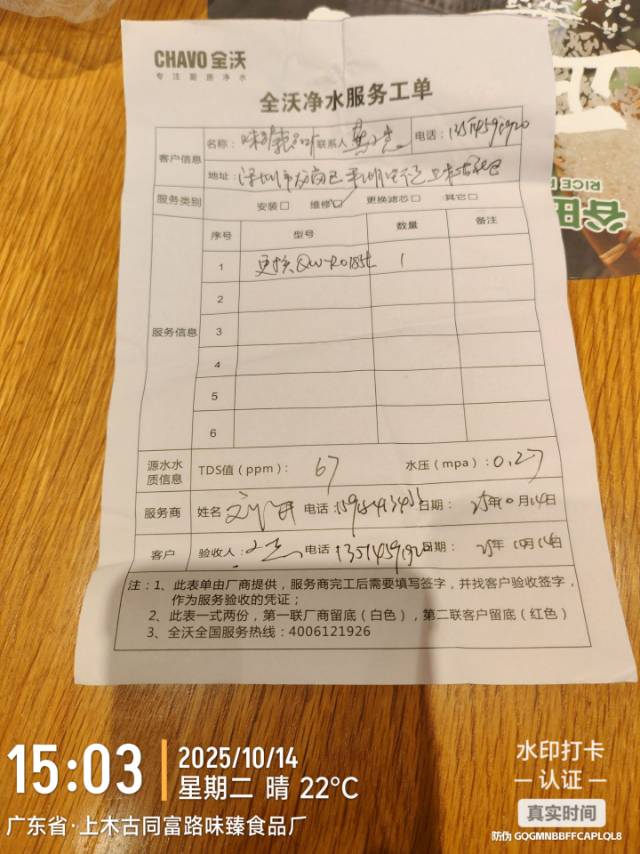 CHAVO 全沃
专注厨房净水
全沃净水服务工单
客户信息 名称： 联系人 电话：13514591920
地址：深圳市龙岗区平湖街道上木古社区
服务类别 安装□ 维修☑ 更换滤芯□ 其它□
服务信息 序号 型号 数量 备注
1 更换 1
2
3
4
5
6
源水水质信息 TDS值（ppm）： 67 水压（mpa）：0.27
服务商 姓名 电话： 日期： 25年10月14日
客户 验收人： 电话 13514591920 日期： 25年10月14日
注：1、此表单由厂商提供，服务商完工后需要填写签字，并找客户验收签字，
作为服务验收的凭证；
2、此表一式两份，第一联厂商留底（白色），第二联客户留底（红色）
3、全沃全国服务热线：4006121926
谷田
RICE
15:03
2025/10/14
星期二 晴 22℃
广东省·上木古同富路味臻食品厂
水印打卡
认证
真实时间
防伪 GQGMNBBFFCAPLQL8